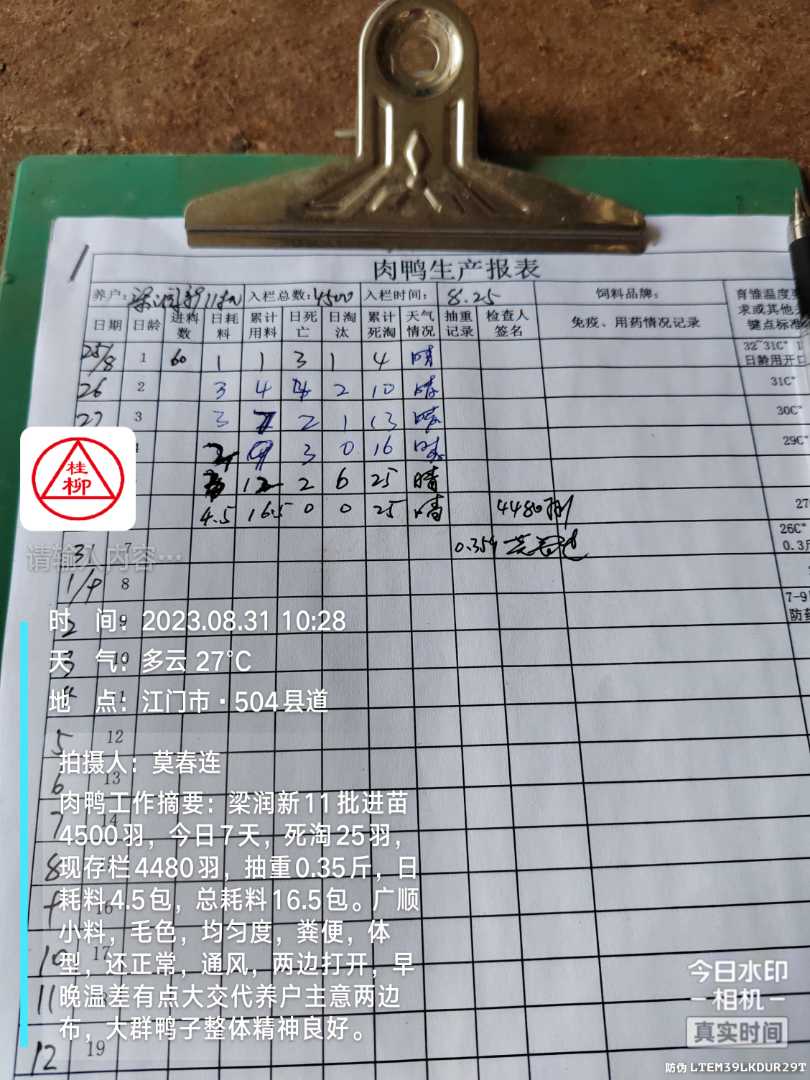 1
肉鸭生产报表
养户: 梁润新11批 入栏总数: 4500 入栏时间: 8.25 饲料品牌: 育雏温度要
求或其他关
键点标准
日期 日龄 进料数 日耗料 累计用料 日死亡 日淘汰 累计死淘 天气情况 抽重记录 检查人签名 免疫、用药情况记录
25/8 1 60 1 1 3 1 4 晴 32~31C° 1
日龄用开口
26 2 3 4 4 2 10 晴 31C°
27 3 3 7 2 1 13 晴 30C°
9 3 0 16 晴 29C°
12 2 6 25 晴
4.5 16.5 0 0 25 晴 4480羽 27
26C°
31 7 0.35斤 莫春连 0.3斤
1/9 8
2 9 7-9
防
3 10
4 11
5 12
6 13
7 14
8
9 16
10 17
11
12 19
桂柳
请输入内容…
时 间: 2023.08.31 10:28
天 气: 多云 27℃
地 点: 江门市·504县道
拍摄人: 莫春连
肉鸭工作摘要: 梁润新11批进苗
4500羽，今日7天，死淘25羽，
现存栏4480羽，抽重0.35斤，日
耗料4.5包，总耗料16.5包。广顺
小料，毛色，均匀度，粪便，体
型，还正常，通风，两边打开，早
晚温差有点大交代养户主意两边
布，大群鸭子整体精神良好。
今日水印
相机
真实时间
防伪 LTEM39LKDUR29T